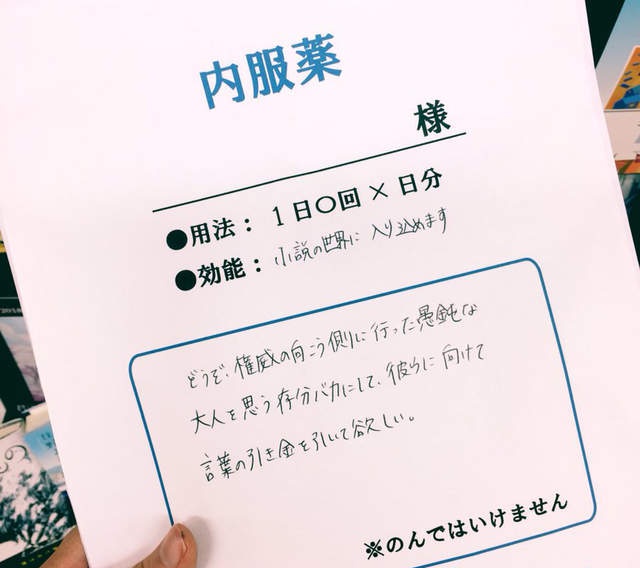 内服薬
様
●用法：１日〇回×日分
●効能：小説の世界に入り込めます
どうぞ、権威の向こう側に行った愚鈍な
大人を思う存分バカにして、彼らに向けて
言葉の引き金を引いて欲しい。
※のんではいけません